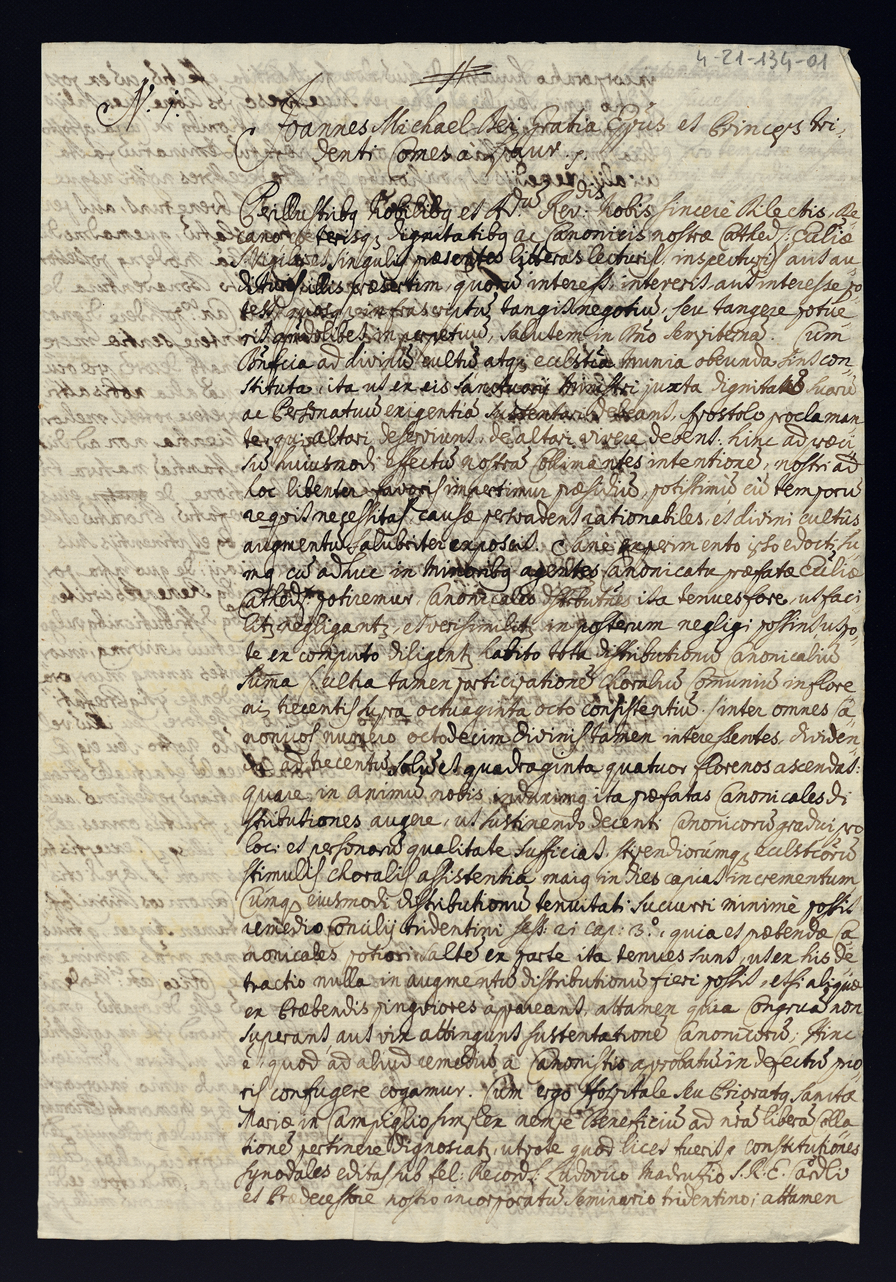 4-21-134-01
N. 1.
Joannes Michael Dei Gratia Ep̃us et Princeps Tri-
denti Comes a
Perillustribq Nobilibq et Adm. Rev.dis Nobis sincerè Dilectis De
cano cæterisq dignitatibq ac Canonicis nostræ Cathed: Ecc̃liæ
singulis præsentes litteras lecturis, inspecturis aut au
dituris illis præsertim, quorũ interest, intererit, aut interesse po
test, infrascriptũ tangit negotiũ, seu tangere potue
rit in perpetuũ, salutem in Dño sempiternã. Cum
Beneficia ad divinũ cultũ atq ecclesiæ munia obeunda sint con
stituta, ita ut ex eis Ministri juxta dignitatũ suarũ
ac Personatuũ exigentiã sustentari debeant, Apostolo proclaman
te, qui altari deserviunt, de altari vivere debent: hinc ad
hujusmodi effectũ nostrã intentionẽ, nostri ad
hoc libenter favoris impertimur præsidiũ, potissimũ cũ temporũ
necessitas, causæ persvadent rationabiles, et divini cultus
augmentũ salubriter exposcit. Sanè experimento ipso edocti su
mq cũ adhuc in minoribq agentes Canonicatu præfatæ Ecc̃liæ
Cathed: potiremur, Canonicales distributiões ita tenues fore, ut faci
lè negligant, et verisimilit in posterum negligi possint, utpo
te ex computo diligent habito tota distributionũ Canonicaliũ
suma, ultra tamen participationẽ Choraliũ Comuniũ in flore
nis trecentis supra octuaginta octo consistentiũ, inter omnes Ca
nonicos numero octodecim divinis tamen interessentes, dividen
da ad trecentũ solùm et quadraginta quatuor florenos ascendat:
quare in animũ nobis induximq ita præfatas Canonicales di
stributiones augere, ut sustinendo decenti Canonicorũ gradui pro
loci et personarũ qualitate sufficiat, stipendiorumq ecclesticorũ
stimulis choralis assistentia maiq in dies capiat incrementum
Cumq eiusmodi distributionũ tenuitati succurri minimè possit
remedio Concilij Tridentini sess. 21 cap: 3.º, quia et præbendæ Ca
nonicales potiori saltẽ ex parte ita tenues sunt, ut ex his de
tractio nulla in augmentũ distributionũ fieri possit, etsi aliquæ
ex Præbendis pinguiores appareant, attamen quia Congruã non
superant aut vix attingunt sustentationẽ Canonicorũ; Hinc
è, quod ad aliud remediũ à Canonistis approbatũ in defectũ prio
ris confugere cogamur. Cum ergo Hospitale seu Prioratq Sanctæ
Mariæ in Campiglio simplex nempè Beneficiũ ad nrã liberã Colla
tionẽ pertinere dignoscat, utpote quod licet fuerit p constitutiones
synodales editas sub fel: Record: Ludovico Madrutio S. R. E. Cardli
et Prædecessore nostro incorporatũ Seminario Tridentino; attamen